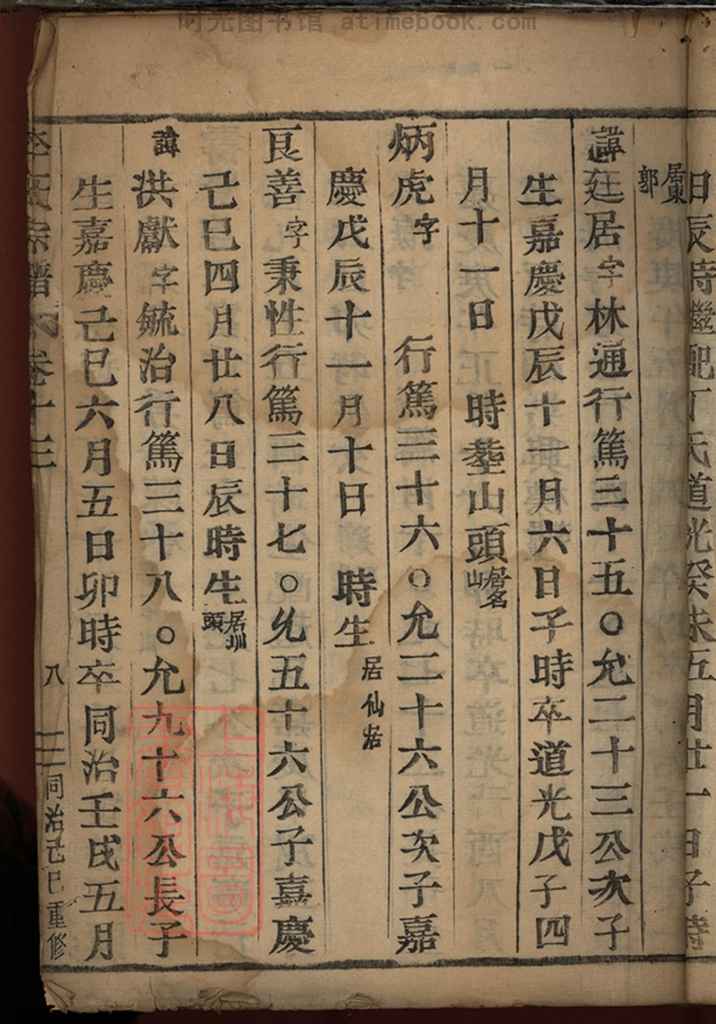 时光图书馆 www.atimebook.com
日辰時繼配丁氏道光癸未五月廿一日子時
居東郭
諱廷居字林通行篤三十五○允二十三公次子
生嘉慶戊辰十一月六日子時卒道光戊子四
月十一日 時塟山頭
炳虎字 行篤三十六○允二十六公次子嘉
慶戊辰十一月十日 時生居仙居
良善字秉性行篤三十七○允五十六公子嘉慶
己巳四月廿八日辰時生居圳頭
諱洪獻字毓治行篤三十八○允九十六公長子
生嘉慶己巳六月五日卯時卒同治壬戌五月
氏宗譜 卷十三 八 同治己巳重修